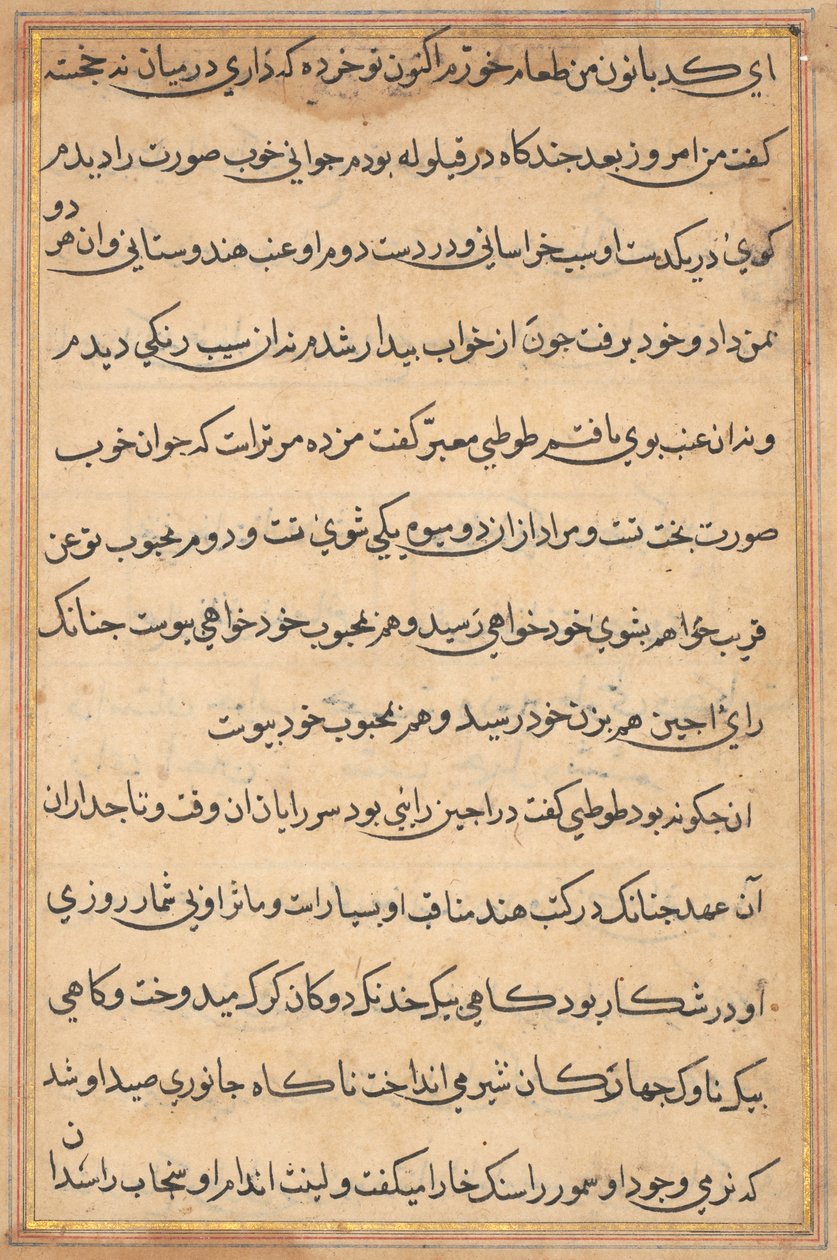 اي كدبانون من طعام خورم اكنون تو خرده كه داري در ميان نه خجسته
كفت من امروز بعد جندكاه در قيلوله بودم جواني خوب صورت را ديدم
كوئي در يكدست او سيب خراساني و در دست دوم او عنب هندوستاني و ان هر دو
بمن داد و خود برفت جون از خواب بيدار شدم نه ازان سيب رنكي ديدم
و نه ازان عنب بوي يافتم طوطيي معبرّ كفت مزده مر تراست كه جوان خوب
صورت بخت تست و مراد ازان دو ميوه يكي شوئ تست و دوم محبوب تو عن
قريب خواهم بشوئ خود خواهي رسيد و هم بمحبوب خود خواهي پيوست جنانك
رائ اجين هم بزن خود رسيد و هم بمحبوب خود پيوست
ان جكونه بود طوطيي كفت در اجين رائي بود سر رايان ان وقت و تاجداران
آن عهد جنانك در كتب هند مناقب او بسيار است و ماثر او بي شمار روزي
او در شكار بود كاهي بيك خدنك دوكان كرك ميدوخت و كاهي
بيك ناوك جهار كان شير مي انداخت ناكاه جانوري صيد او شد
كه نرمي وجود او سمور را سنك خارا ميكفت و لينت اندام او سنجاب را سندان